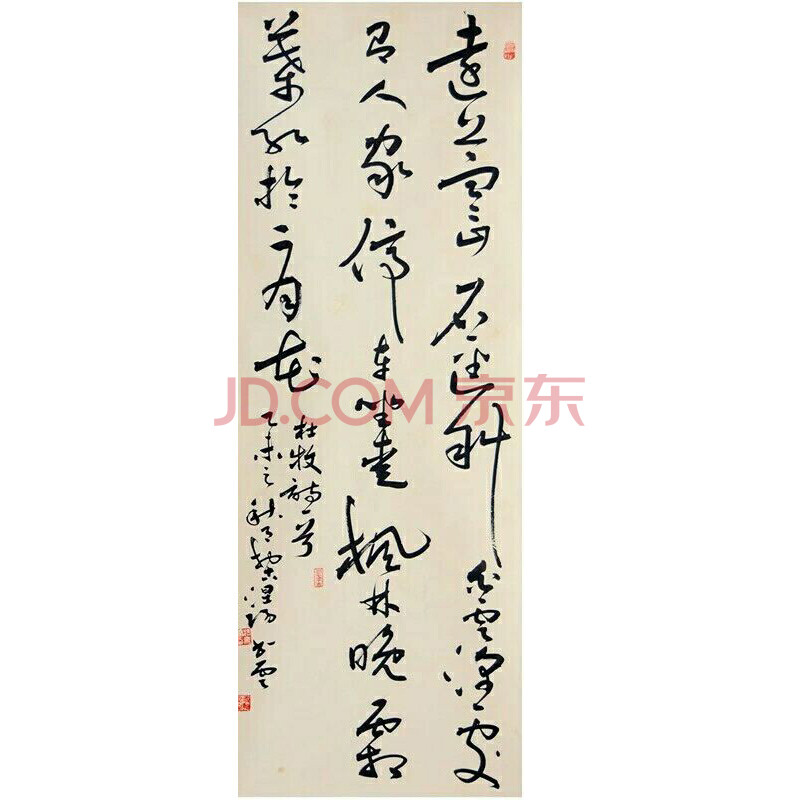 遠上寒山石径斜白雲深處
有人家停車坐愛楓林晚霜
葉紅於二月花
杜牧詩一首
乙未之秋月
JD.COM 京东